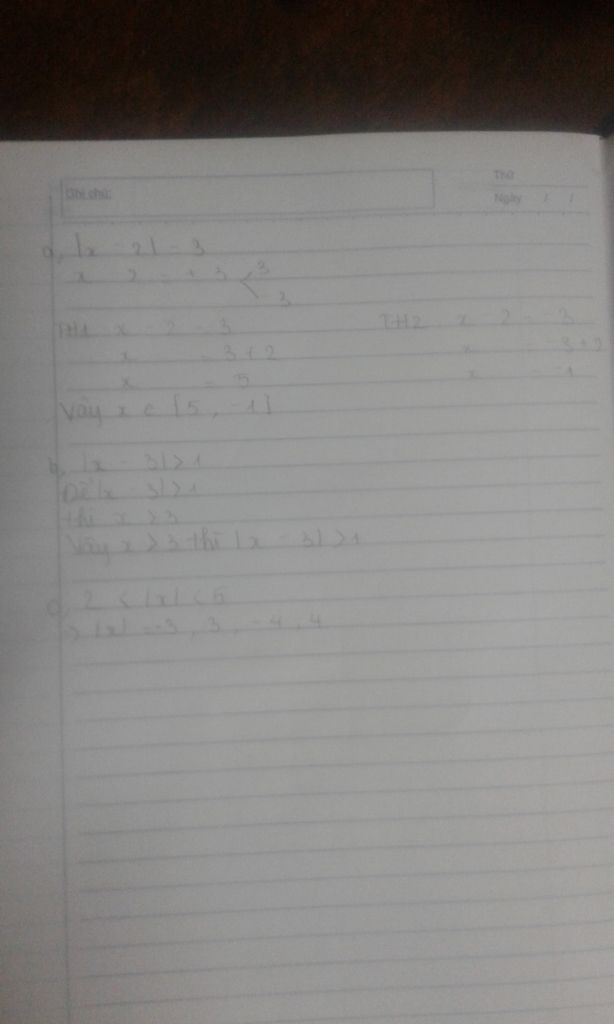 Ghi chú:
Thứ
Ngày / /
a, |x - 2| = 3
x - 2 = ± 3 < 3
-3
TH1 x - 2 = 3
x = 3 + 2
x = 5
TH2 x - 2 = -3
x = -3 + 2
x = -1
Vậy x ∈ {5, -1}
b, |x - 3| > 1
Để |x - 3| > 1
thì x > 3
Vậy x > 3 thì |x - 3| > 1
c, 2 < |x| < 5
=> |x| = -3, 3, -4, 4